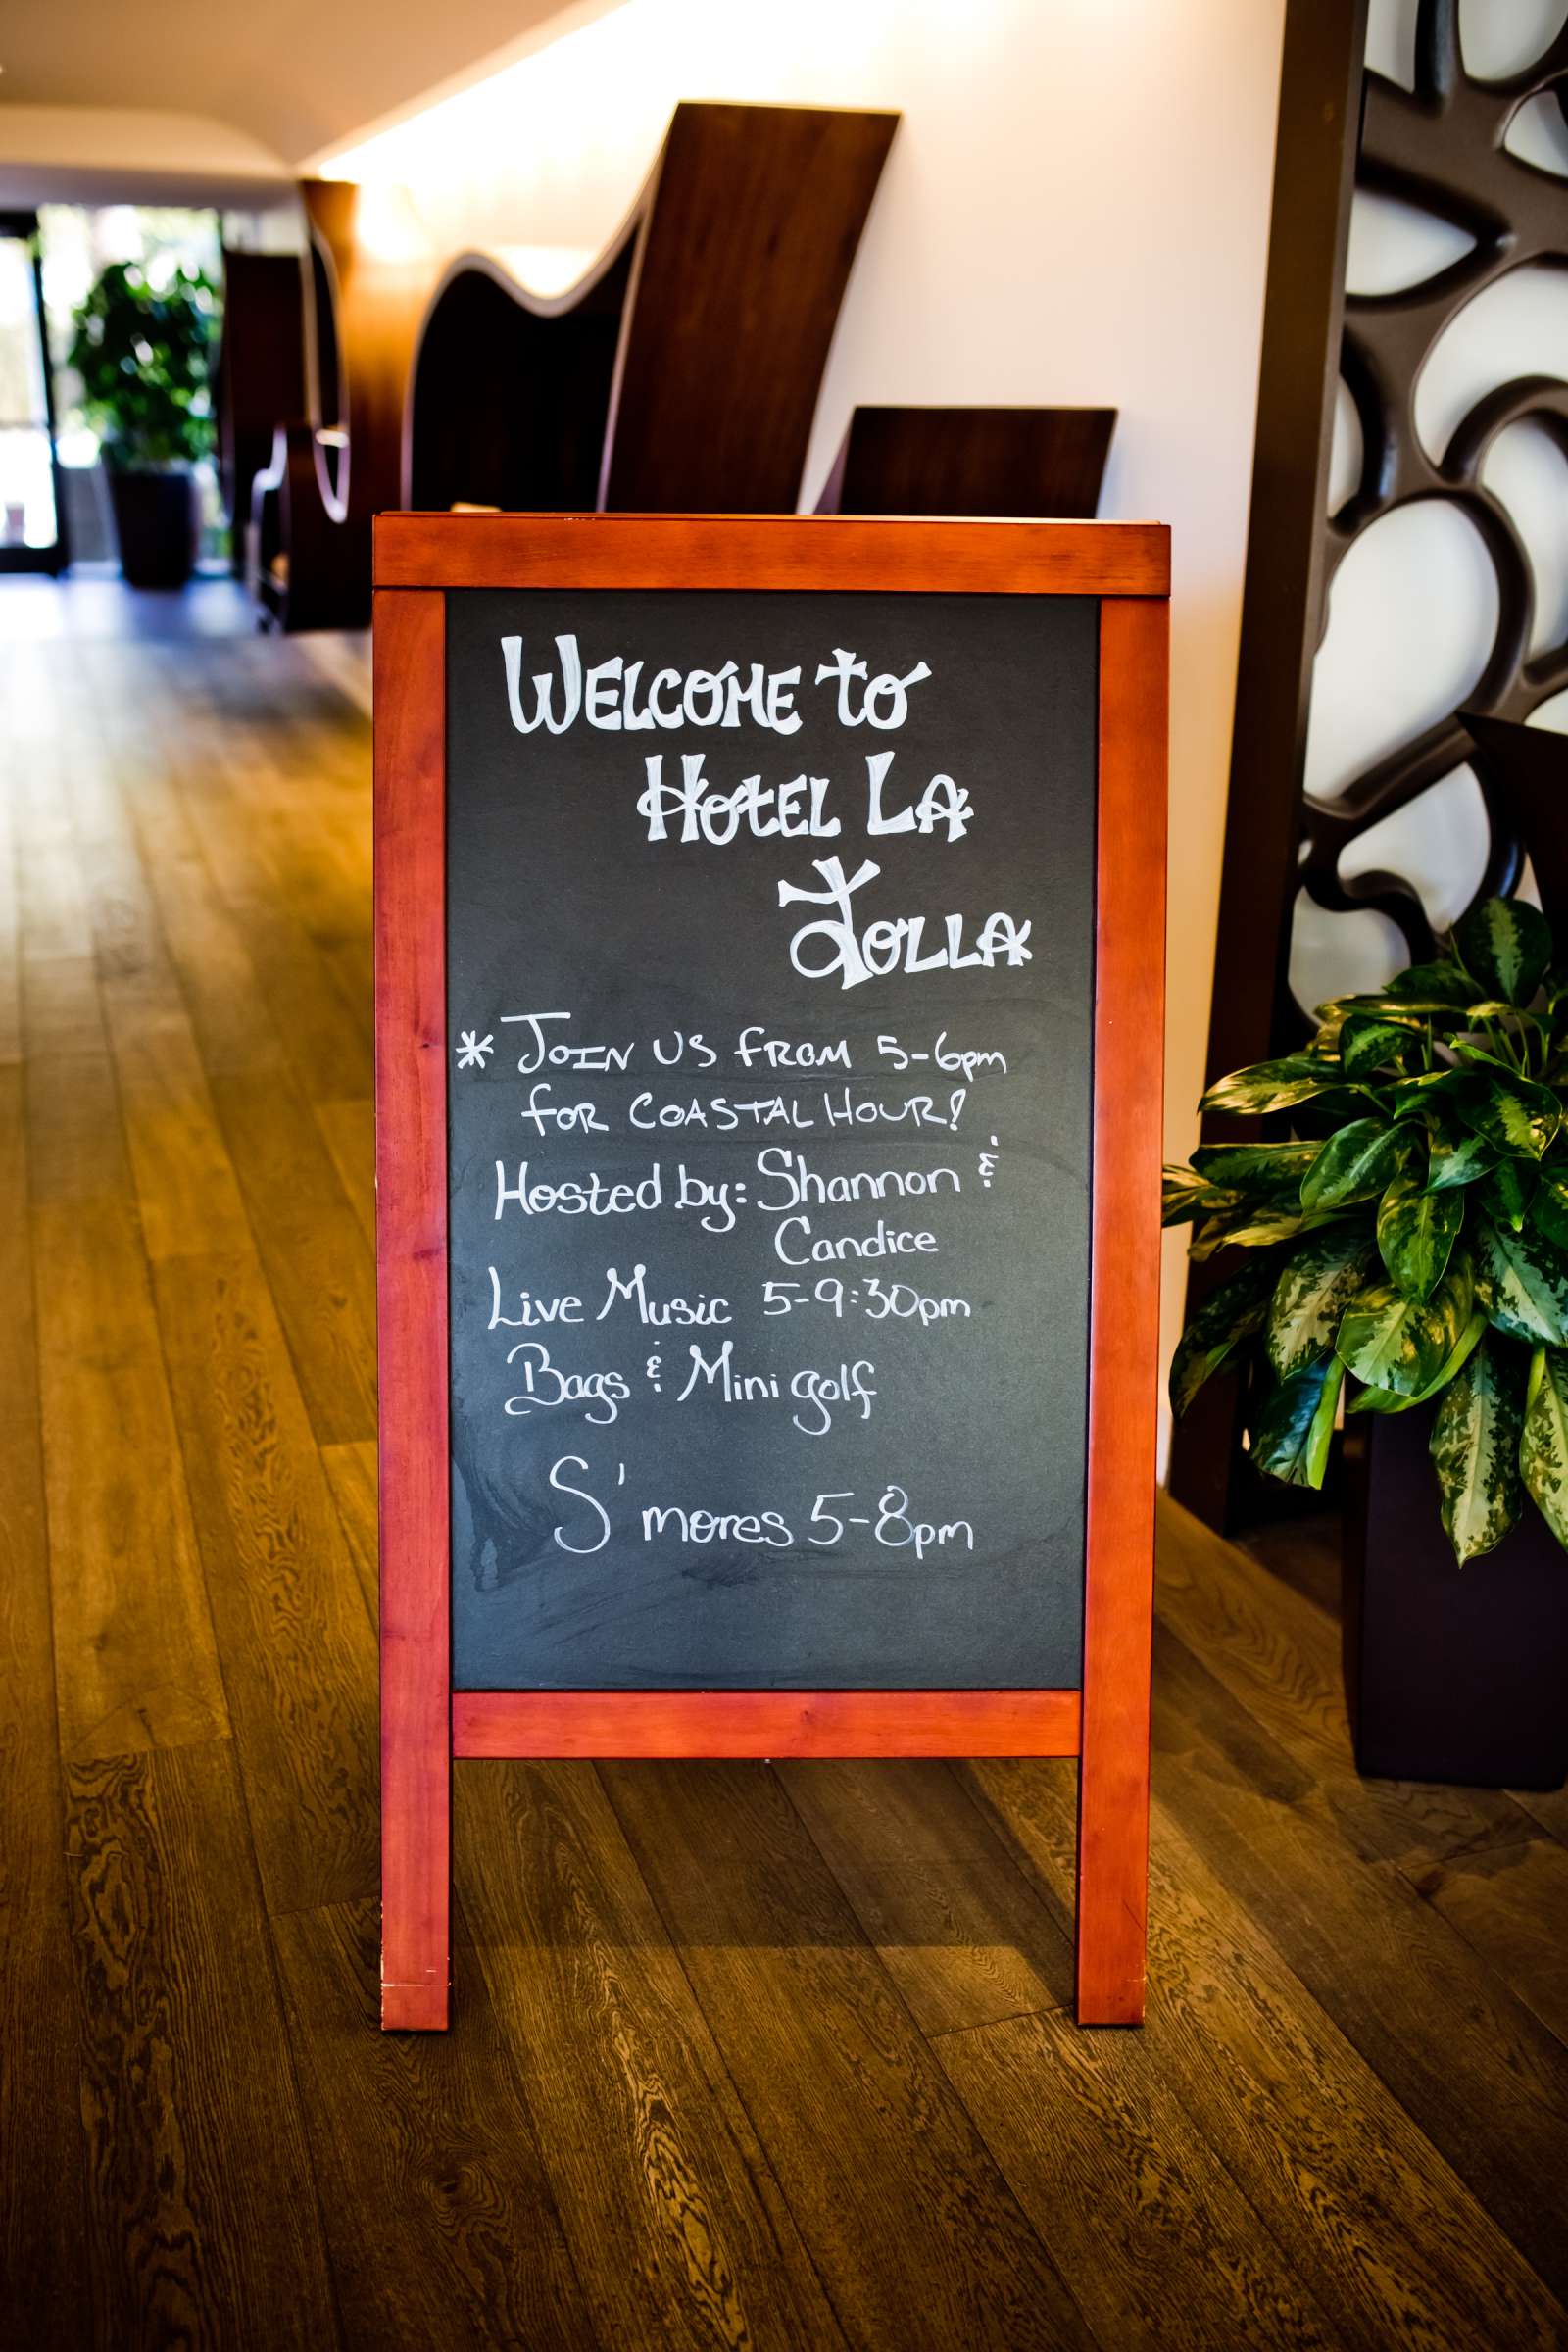 WELCOME to
HOTEL LA
JOLLA
* JOIN US FROM 5-6pm
FOR COASTAL HOUR!
Hosted by: Shannon &
Candice
Live Music 5-9:30pm
Bags & Mini golf
S'mores 5-8pm